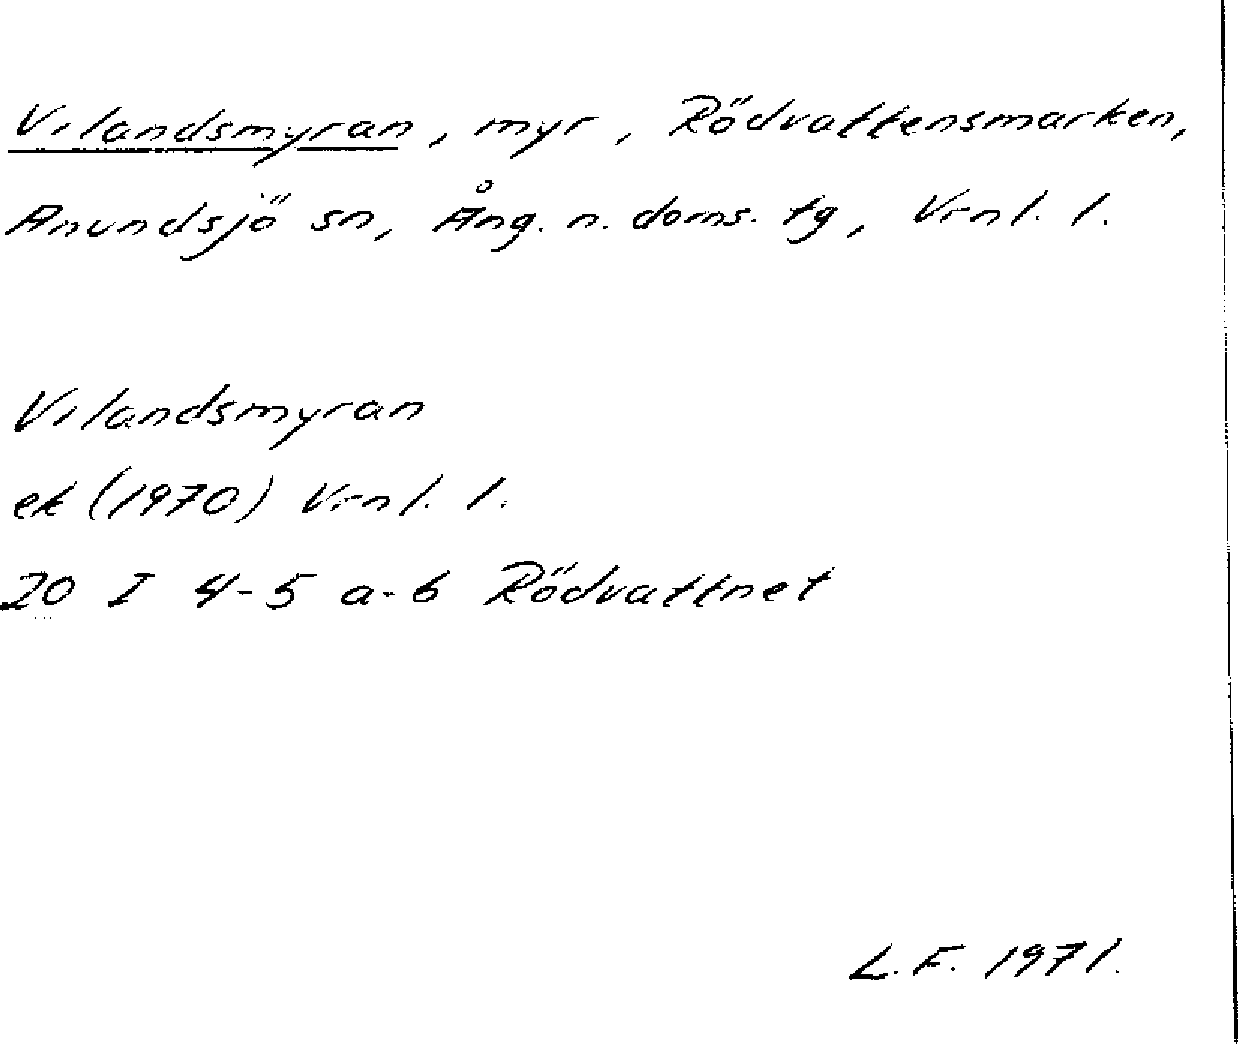 Vilandsmyran, myr, Rödvattensmarken,
Anundsjö sn, Ång. n. doms. tg, Vrnl. l.
Vilandsmyran
ek (1970) Vrnl. l.
20 I 4-5 a-b Rödvattnet
L.F. 1971.